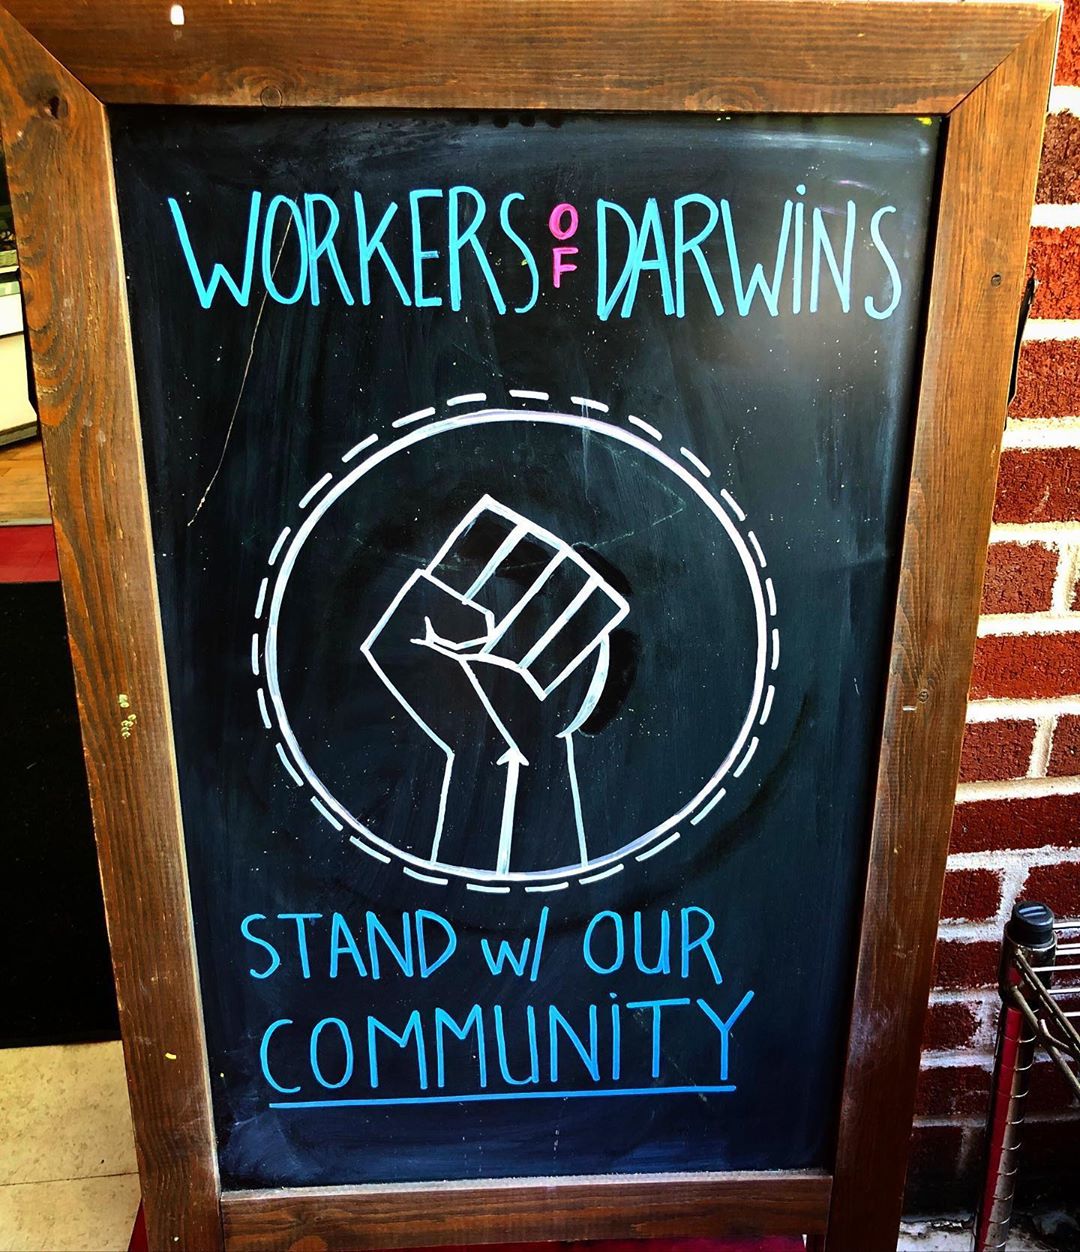 WORKERS OF DARWINS
STAND w/ OUR
COMMUNITY